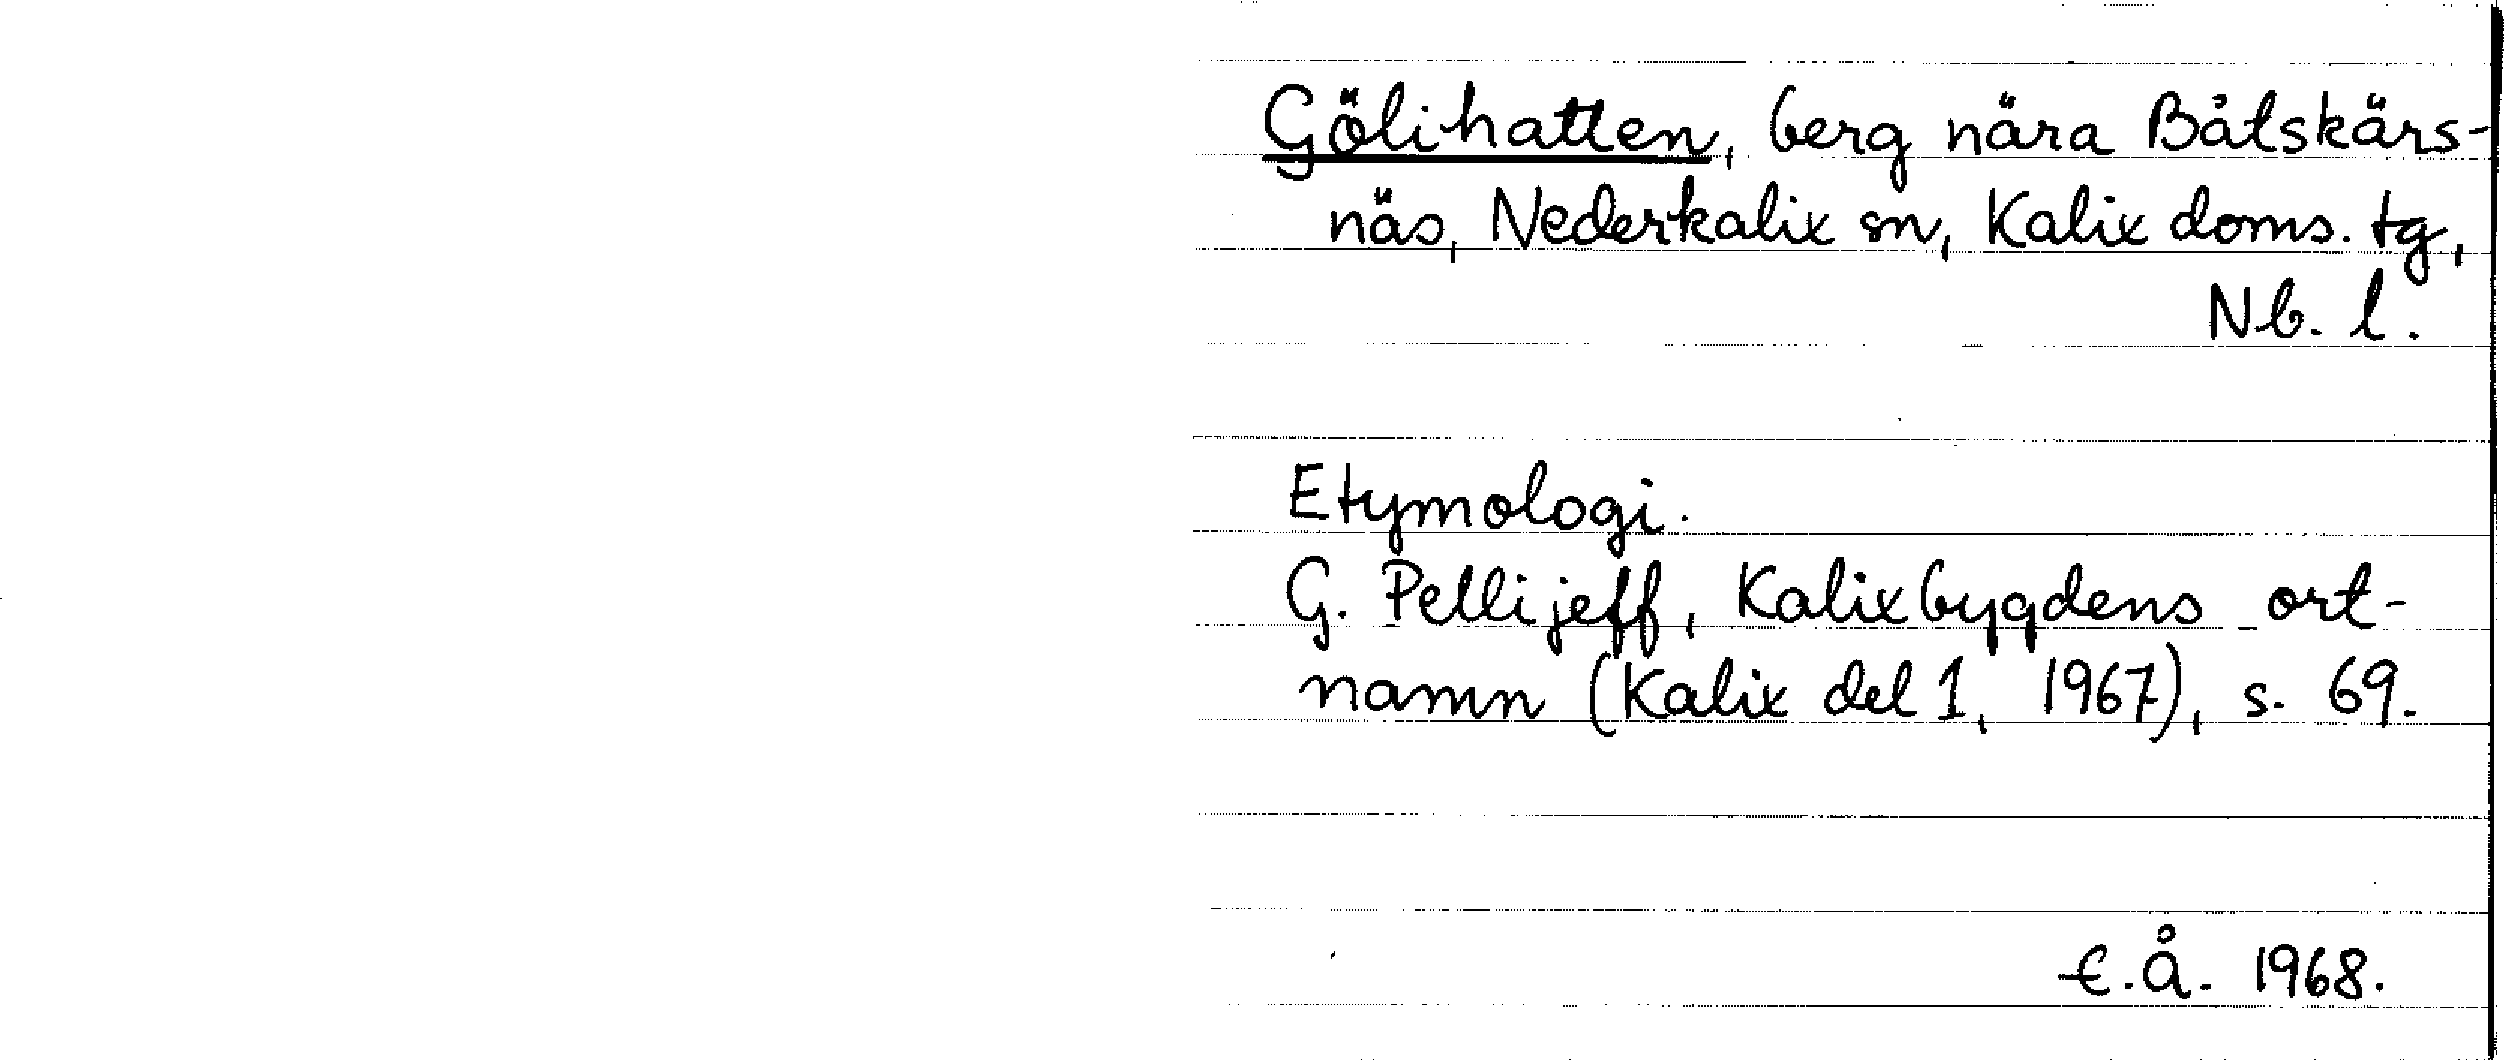 Gölihatten, berg nära Båtskärs-
näs, Nederkalix sn, Kalix doms. tg,
Nb. l.
Etymologi.
G. Pellijeff, Kalixbygdens ort-
namn (Kalix del 1, 1967), s. 69.
E.Å. 1968.